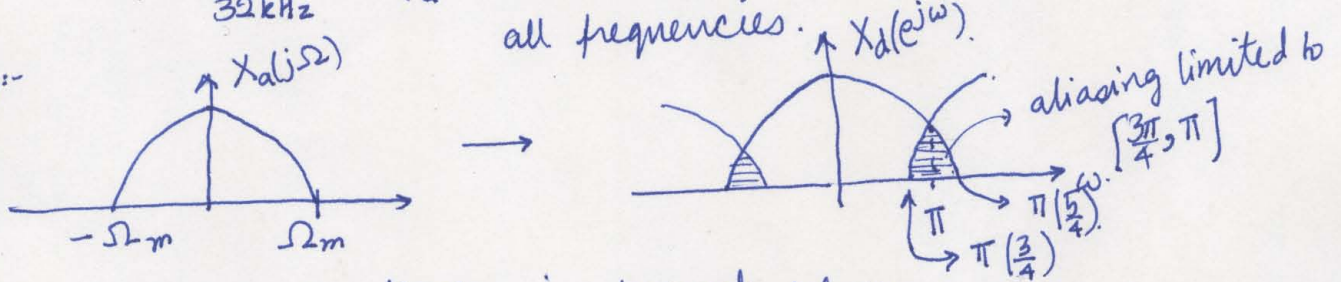 32kHz
all frequencies.
:-
Xa(jΩ)
Xd(e^jω).
aliasing limited to
[3π/4, π]
-Ωm
Ωm
π
ω.
π(5/4).
π(3/4)